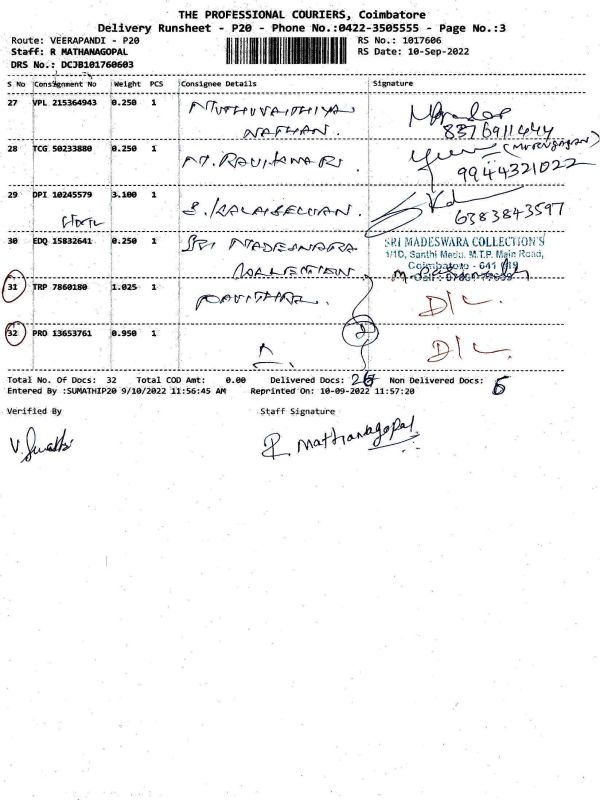 THE PROFESSIONAL COURIERS, Coimbatore
Delivery Runsheet - P20 - Phone No.:0422-3505555 - Page No.:3
Route: VEERAPANDI - P20 RS No.: 1017606
Staff: R MATHANAGOPAL RS Date: 10-Sep-2022
DRS No.: DCJB101760603
S No Consignment No Weight PCS Consignee Details Signature
27 VPL 215364943 0.250 1 MUTHUVAITHIYA
NATHAN. 8376911444
28 TCG 50233880 0.250 1 M. RAVIKUMAR
9944321022
29 DPI 10245579 3.100 1 S. KALAISELVAN.
6383843597
30 EDQ 15832641 0.250 1 SRI MADESWARA
COLLECTION
SRI MADESWARA COLLECTION'S
1/1D, Santhi Medu, M.T.P. Main Road,
Coimbatore - 641 019
31 TRP 7860180 1.025 1 PAVITHRA. D/L
32 PRO 13653761 0.950 1 2 D/L
Total No. Of Docs: 32 Total COD Amt: 0.00 Delivered Docs: Non Delivered Docs:
Entered By :SUMATHIP20 9/10/2022 11:56:45 AM Reprinted On: 10-09-2022 11:57:20
Verified By Staff Signature
R. Mathanagopal